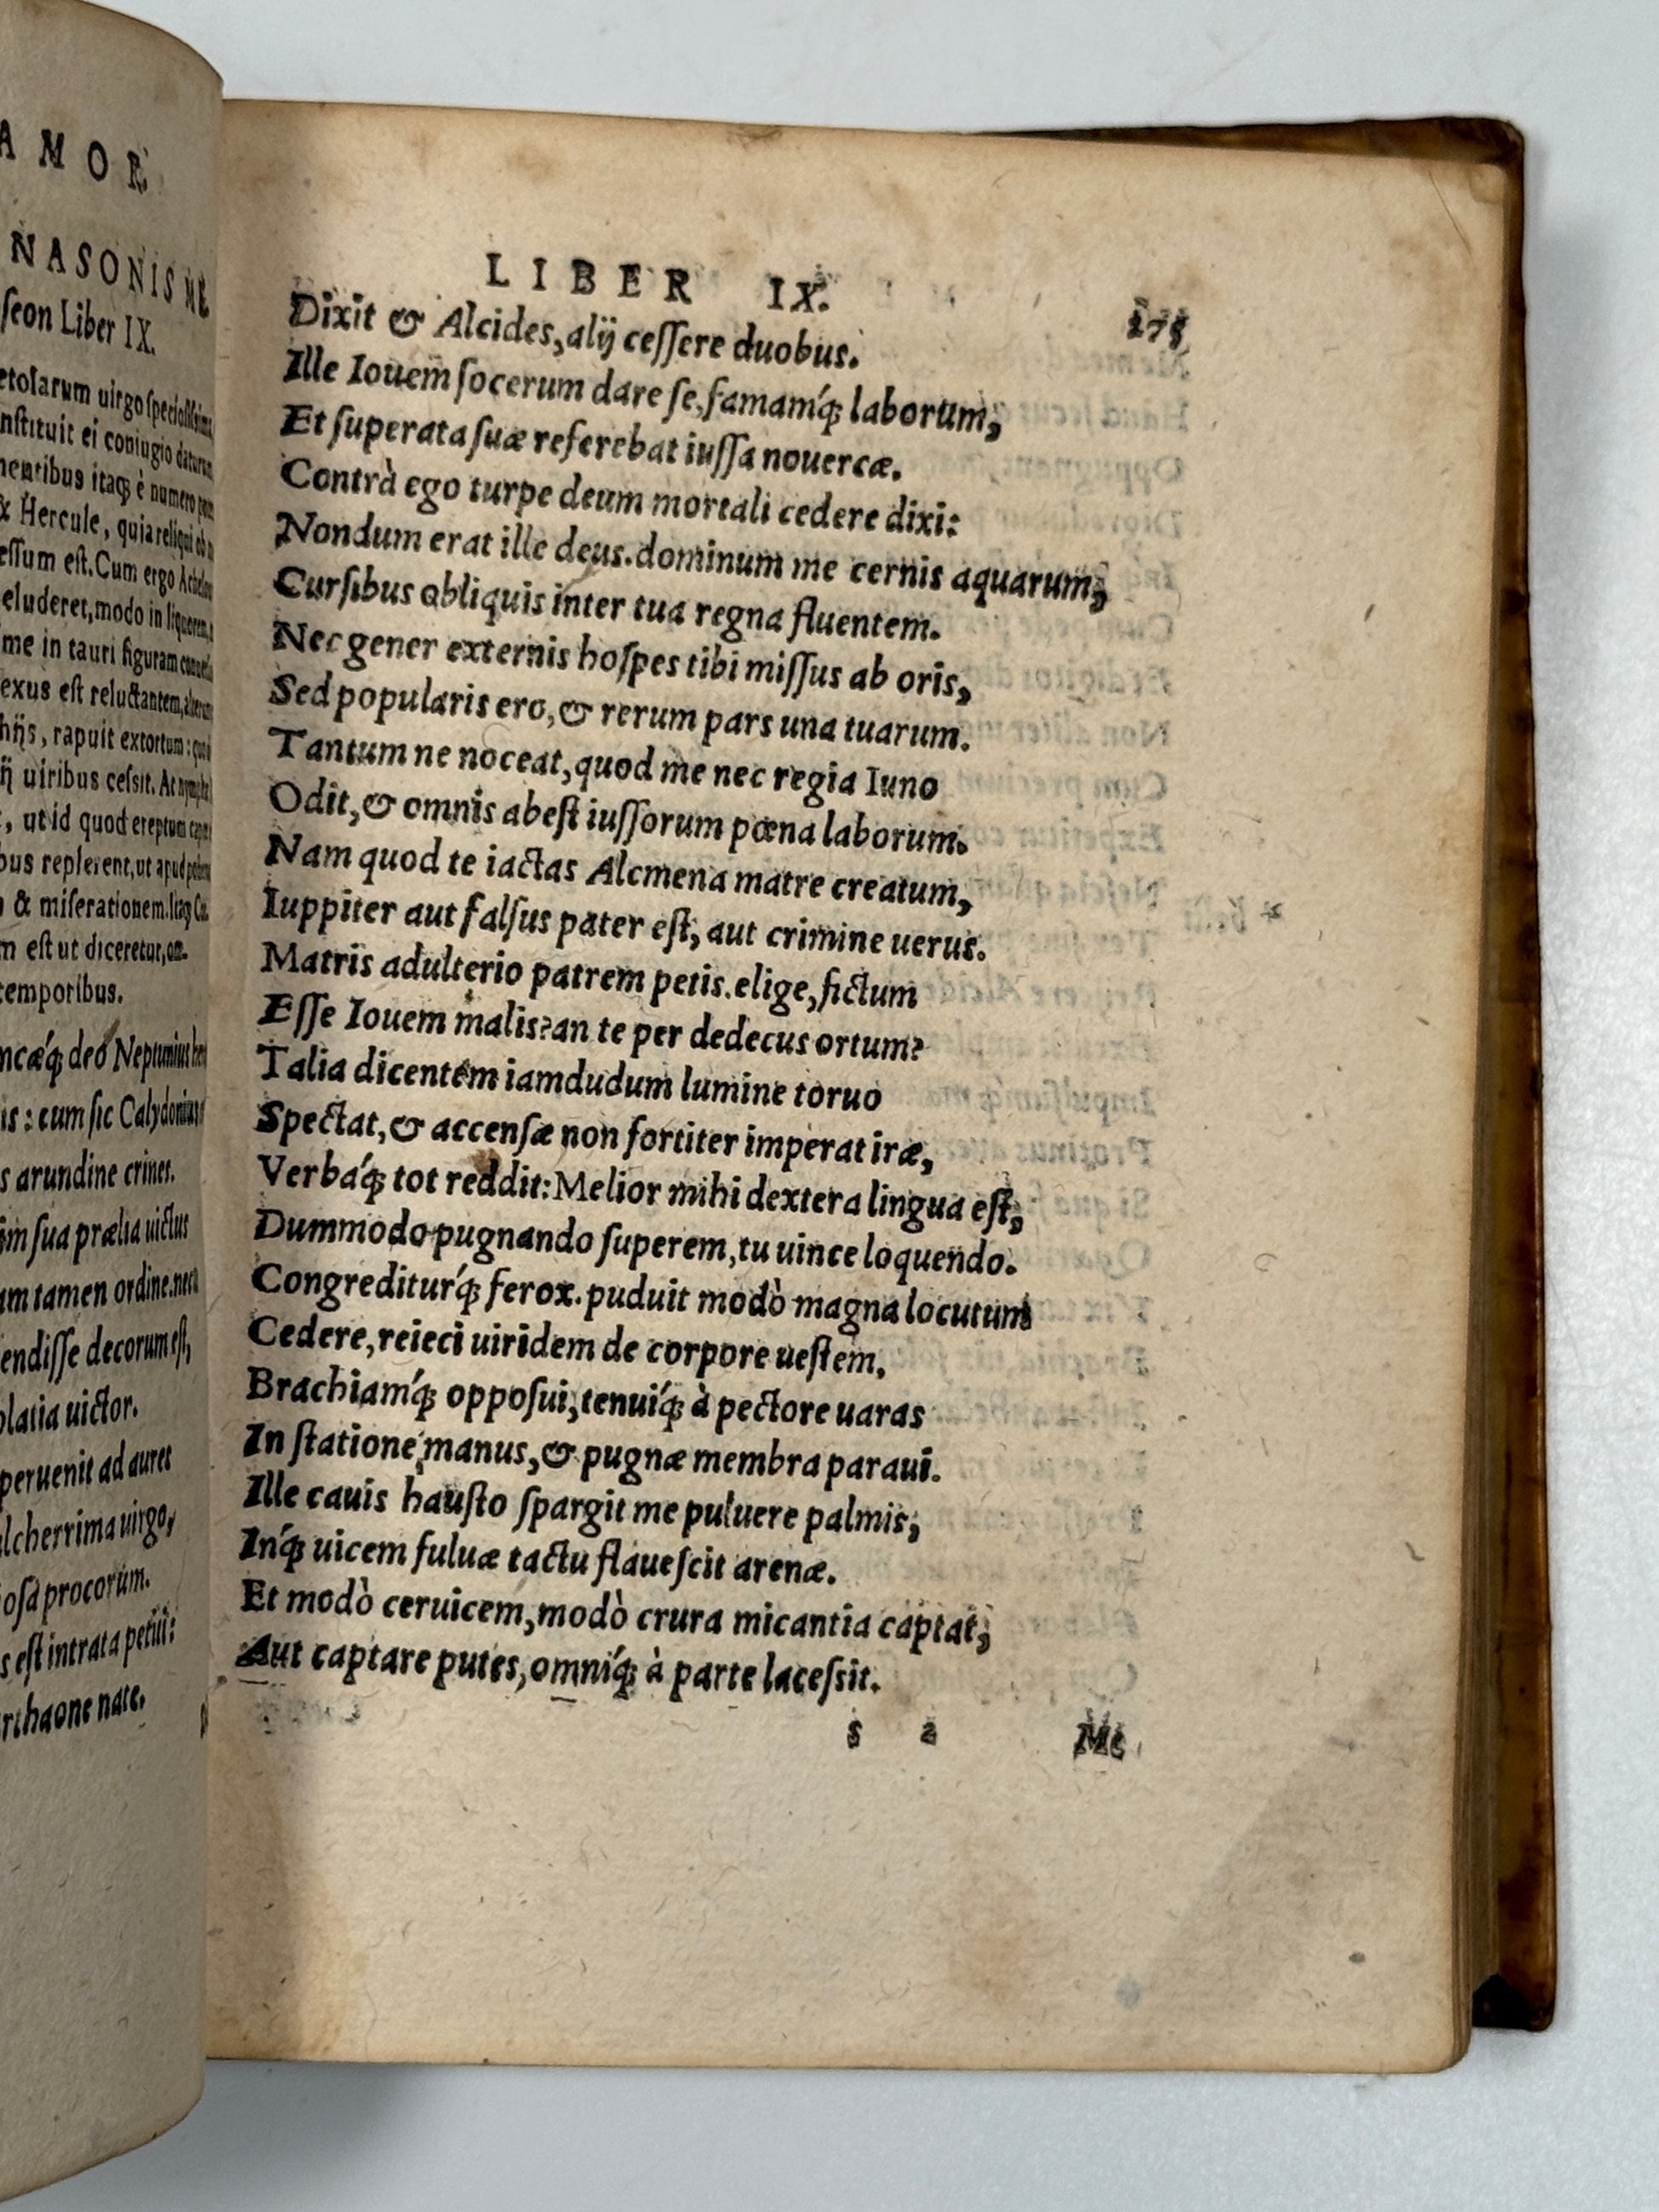 AMOR
NASONIS ME
seon Liber IX.
etolarum uirgo speciosissima
nstituit ei coniugio daturum
mentibus itaq; è numero
& Hercule, quia reliqui ob
essum est. Cum ergo Achelous
eluderet, modo in liquorem
me in tauri figuram
exus est reluctantem,
hijs, rapuit extortum:
ij uiribus cessit. At
, ut id quod ereptum
bus replerent, ut apud
& miserationem. Itaq;
m est ut diceretur,
temporibus.
mcǽq; deo Neptunius
is: cum sic Calydonius
s arundine crines.
im sua prælia uictus
am tamen ordine. nec
endisse decorum est,
olatia uictor.
peruenit ad aures
lcherrima uirgo,
iosa procorum.
s est intrata petiti:
rthaone nate.
LIBER IX. 275
Dixit & Alcides, alij cessere duobus.
Ille Iouem socerum dare se, famamq́; laborum,
Et superata suæ referebat iussa nouercæ.
Contrà ego turpe deum mortali cedere dixi:
Nondum erat ille deus. dominum me cernis aquarum,
Cursibus obliquis inter tua regna fluentem.
Nec gener externis hospes tibi missus ab oris,
Sed popularis ero, & rerum pars una tuarum.
Tantum ne noceat, quod me nec regia Iuno
Odit, & omnis abest iussorum pœna laborum.
Nam quod te iactas Alcmena matre creatum,
Iuppiter aut falsus pater est, aut crimine uerus.
Matris adulterio patrem petis. elige, fictum
Esse Iouem malis? an te per dedecus ortum?
Talia dicentem iamdudum lumine toruo
Spectat, & accensæ non fortiter imperat iræ,
Verbaq́; tot reddit: Melior mihi dextera lingua est,
Dummodo pugnando superem, tu uince loquendo.
Congrediturq́; ferox. puduit modò magna locutum
Cedere, reieci uiridem de corpore uestem,
Brachiamq́; opposui, tenuiq́; à pectore uaras
In statione manus, & pugnæ membra paraui.
Ille cauis hausto spargit me puluere palmis,
Inq́; uicem fuluæ tactu flauescit arenæ.
Et modò ceruicem, modò crura micantia captat,
Aut captare putes, omniq́; à parte lacessit.
s 2 Me